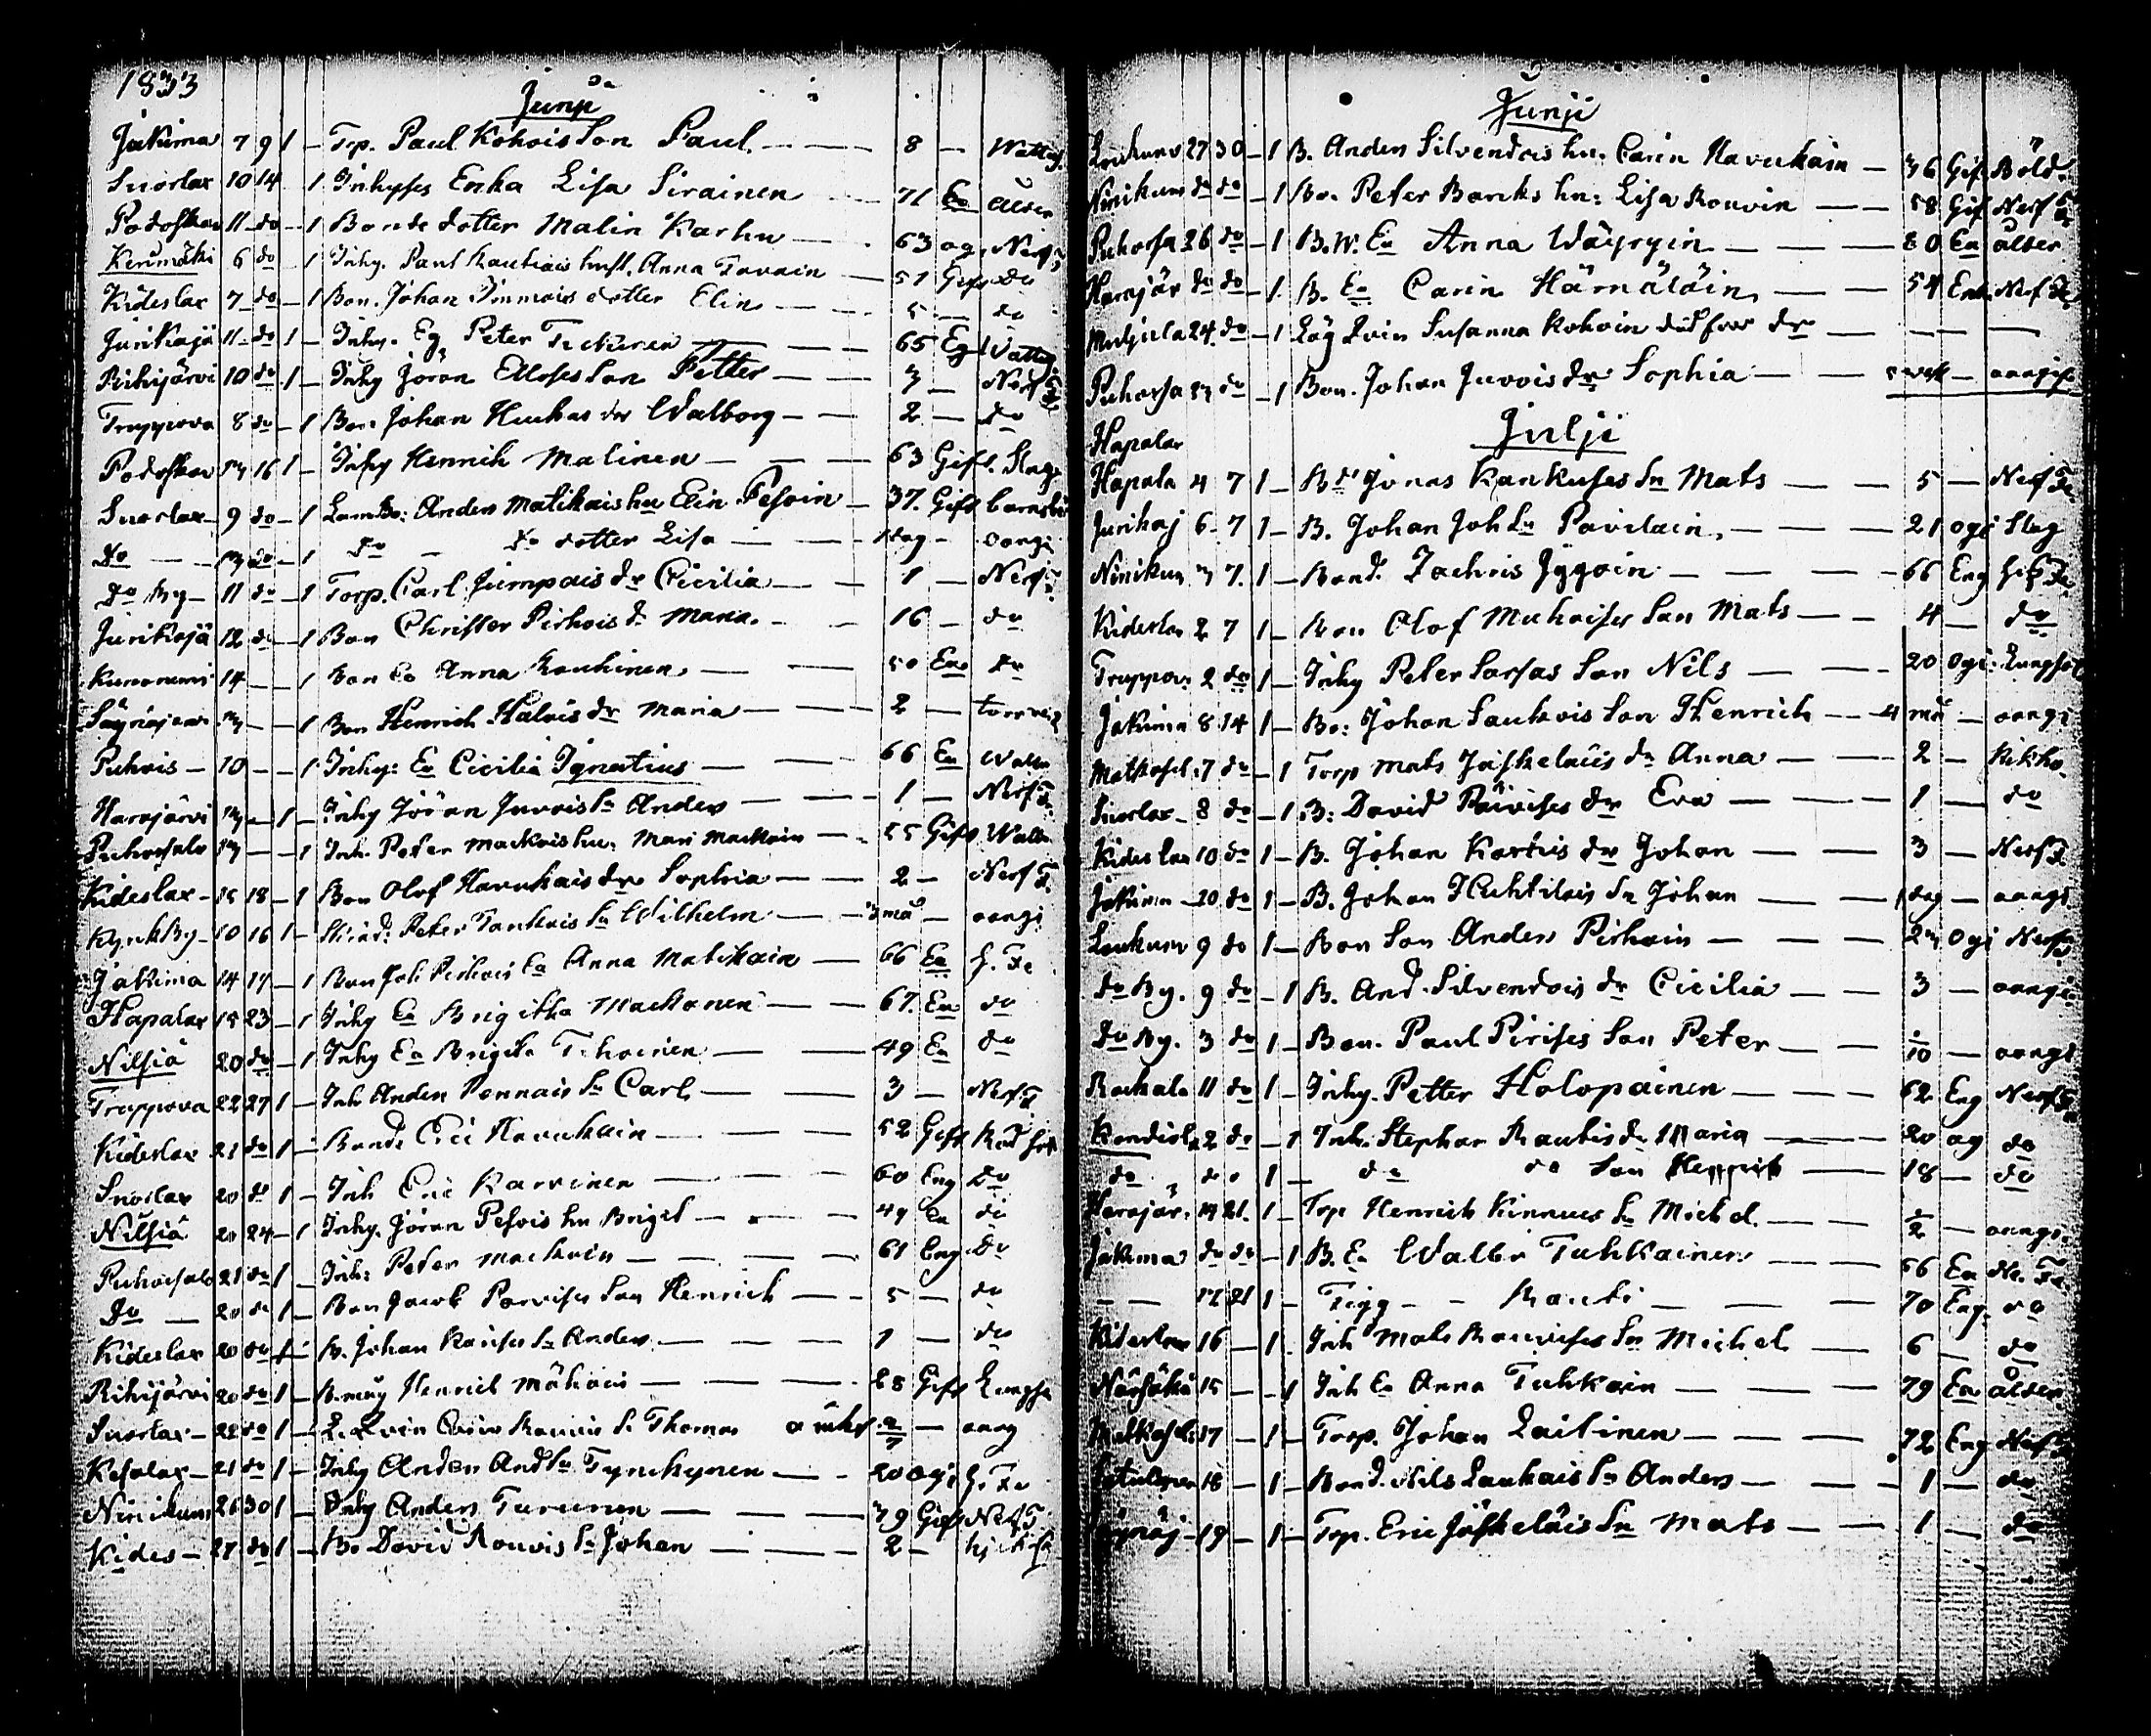 1833
Junji
Jakima 7 9 1 - Trp. Paul Kohois Son Paul 8 - Wattus.
Suorlax 10 14 1 Inhyses Enka Lisa Sirainen 71 Ea ålder
Podoskau 11 do - 1 Bonde dotter Malin Karhu 63 og. Nerf
Kerimäki 6 do 1 Inhy. Paul Rautiais hust. Anna Tavain 51 Gift do
Kideslax 7 do - 1 Bon. Johan Immois dotter Elin 5 - do
Jurikajä 11 do 1 - Inhy. Eg Peter Tickinen 65 Eg Wattus
Riihijärvi 10 do 1 - Inhy Jöran Ellosis Son Petter 3 - Nerf F.
Truppova 8 do - 1 Bon. Johan Huckas dr Walborg 2 - do
Podoskau 13 16 1 - Inhy Henrik Malinen 63 Gift. Slag
Suorlax 9 do - 1 Anders Matikais hu Elin Pesoin 37. Gift barnsb
Do 13 do - 1 do do dotter Lisa 1 dag - oangi
Do By 11 do - 1 Torp. Carl Jumpois dr Cicilia 1 - Nerf.
Jurikajä 12 do - 1 Bon Christer Pirhois dr Maria 16 - do
14 - - 1 Bon Ea Anna Rouhinen 50 Ea do
13 - - 1 Bon Henrich Halois dr Maria 2 -
Puhois - 10 - - 1 Inhy: Ea Cicilia Ignatius 66 Ea
Harajärvi 13 - 1 - Inhy Jöran Juvois Sn Anders 1 - Nerf F.
Puhossalo 13 - - 1 Inh. Peter Mackois hu. Mari Mackoin 55 Gift
Kideslax - 15 18 - 1 Bon Olof Havukais dr Sophia 2 - Nerf F.
10 16 1 - Peter Tankois Sn Wilhelm 3 må - oangi
Jakima 14 17 - 1 Bon Joh Pirhois Ea Anna Matikain 66 Ea H. Fe
Hapalax 15 23 - 1 Inhy Ea Brigitha Mackonen 67. Ea do
Nilsiä 20 do - 1 Inhy Ea Brigita Tihoinen 49 Ea do
Truppova 22 27 1 - Inh Anders Pennais Sn Carl 3 - Nerf F
Kideslax 21 do 1 - Bonde Eric Havukain 52 Gift
Suorlax 20 do 1 - Inh Eric Karvinen 60 Eng do
Nilsiä 20 24 - 1 Inhy. Jöran Pesois hu Brigit 49 do
Puhossalo 21 do 1 - Inh: Peter Mackoin 61 Eng do
Do - 20 do 1 - Bon Jacob Parvises Son Henrich 5 - do
Kideslax 20 do 1 - B. Johan Sn Anders 1 - do
Riihijärvi 20 do 1 - B.måg Henrich Mähöin 28 Gift Lungs
Suorlax - 22 do 1 - Sn Thomas - oang
Kesalax - 21 do 1 - Inhy Anders And Sn Tynckynen 20 Ogi H. Fe
Ninikum 26 30 1 - Inhy Anders Turunen 39 Gift Nerf F
Kides - 27 do 1 - Bo David Rouvis Sn Johan 2 -
Junji
27 30 - 1 B. Anders Silvendois hu. Carin Havukain 36 Gift
Ninikum do do - 1 Bo. Peter Bancks hu: Lisa Rouvin 58 Gif Nerf F.
Puhossa 26 do - 1 B.W. Ea Anna Wäyryin 80 Ea ålder
Harajär do do - 1. B. Ea Carin Hämäläin 54 Enk. Nerf Fe
24. do - 1 Susanna Kohoin död för dr
Puhossa 23 do - 1 Bon. Johan Juvois dr Sophia - oangif
Julji
Hapalax
Hapala 4 7 1 - Bd Jonas Kankuses Sn Mats 5 - Nerf Fe.
Jurikaj 6 - 7 1 - B. Johan Joh Sn Pavilain 21 ogi Slag
Ninikum 3 7. 1 - Bond. Zachris Jygoin 66 Eng
Kideslax 2 7 1 - Bon Olof Muhoises Son Mats 4 - do
Truppov. 2 do 1 - Inhy Peter Sarsas Son Nils 20 Ogi. Lungsot
Jakima 8 14 1 - Bo: Johan Saukois Son Henrich 4 må - oangi
Matkasel. 7 do - 1 Torp Mats Jäskeläis dr Anna 2 - Kikho.
Suorlax - 8 do - 1 B: David Päivises dr Eva 1 - do
Kideslax 10 do 1 - B. Johan Kortis dr Johan 3 - Nerf F.
Jakima - 10 do 1 - B. Johan Huhtilais Sn Johan 1 dag - oangi
9 do 1 - Bon Son Anders Pirhoin 23 Ogi Nerf F.
Do By. 9 do - 1 B. And. Silvendois dr Cicilia 3 - oangi
Do By. 3 do 1 - Bon. Paul Pirises Son Peter 1/10 - oangi
11 do 1 - Inhy. Petter Holopainen 62 Eng Nerf Fe
2 do - 1 Inh. Stephan Rautis dr Maria 20 og do
do do 1 - do do Son Henrich 18 - do
Harajär. 19 21. 1 - Trp Henrich Kinnues Sn Michel 1/2 - oangi.
Jakima do do - 1 B. Ea Walbr Tuhkainen 66 Ea Ne. Fe
- - 17 21 1 - Tigg - - Rauti 70 Eng. do
Kideslax 16 - 1. Inh Mats Sn Michel 6 - do
15 - - 1 Inh Ea Anna Tuhkain 79 Ea ålder
Matkasel. 17 - 1 - Torp. Johan Laitinen 72 Eng Nerf F
18 - 1 - Bond. Nils Laukais Sn Anders 1 - do
19 - 1 - Trp. Eric Jäskeläis Sn Mats 1 - do